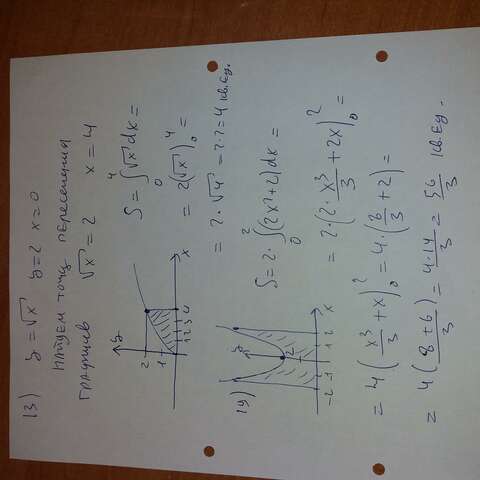 13) y = √x y = 2 x = 0
найдем точку пересечения
графиков √x = 2 x = 4
S = ∫₀⁴ √x dx =
= 2(√x)₀⁴ =
= 2·√4 = 2·2 = 4 кв.ед.
y
2
1
1 2 3 4
x
14)
S = 2·∫₀² (2x²+2)dx =
= 2·(2·x³/3 + 2x)₀² =
y
2
-2 -1 1 2
x
= 4(x³/3 + x)₀² = 4·(8/3 + 2) =
= 4((8+6)/3) = 4·14/3 = 56/3 кв.ед.